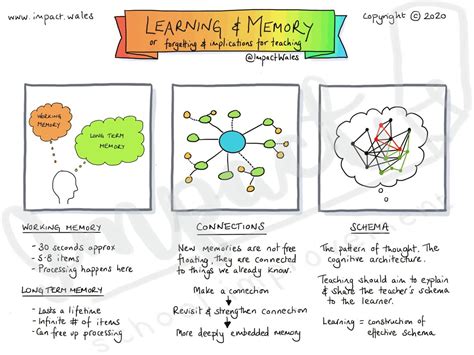 www.impact.wales
LEARNING & MEMORY
or forgetting & implications for teaching
@ImpactWales
Copyright © 2020
WORKING
MEMORY
LONG TERM
MEMORY
WORKING MEMORY
- 30 seconds approx
- 5-8 items
- Processing happens here
LONG TERM MEMORY
- Lasts a lifetime
- Infinite # of items
- Can free up processing
CONNECTIONS
New memories are not free
floating. They are connected
to things we already know.
Make a connection
Revisit & strengthen connection
More deeply embedded memory
SCHEMA
The pattern of thought. The
cognitive architecture.
Teaching should aim to explain
& share the teacher's schema
to the learner.
Learning = construction of
effective schema